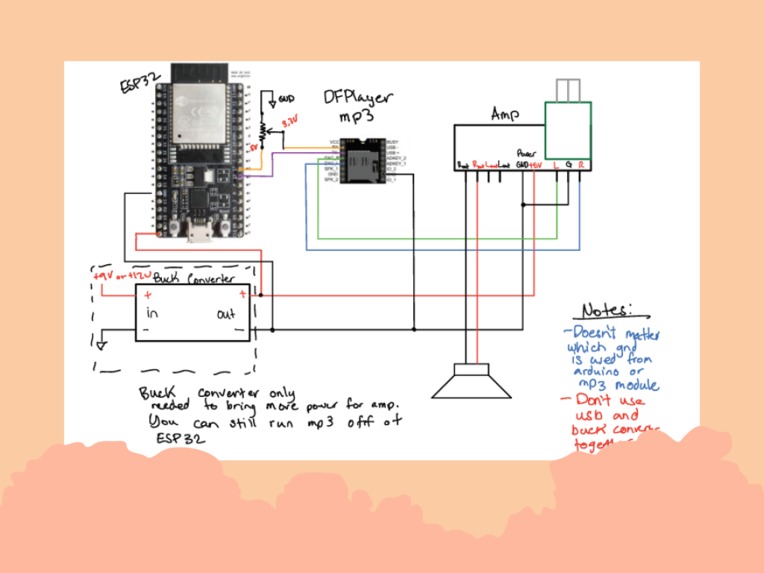 ESP32
GND
3.3V
5V
DFPlayer
mp3
VCC
BUSY
RX
USB-
TX
USB+
DAC_R
ADKEY_2
DAC_L
ADKEY_1
SPK_1
IO_2
GND
SPK_2
IO_1
Amp
Power
Rout
Rout
Lout
Lout
GND
+5V
L
G
R
+9V or +12V
Buck Converter
+
+
in
out
-
-
Buck converter only
needed to bring more power for amp.
You can still run mp3 off of
ESP32
Notes:
-Doesn't matter
which gnd
is used from
arduino or
mp3 module
- Don't use
usb and
buck